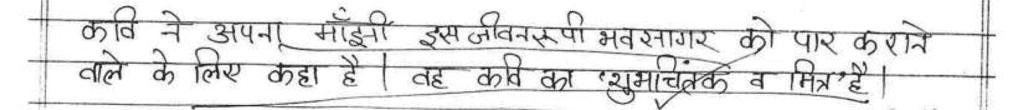 कवि ने अपना माँझी इस जीवनरूपी भवसागर को पार कराने
वाले के लिए कहा है। वह कवि का 'शुभचिंतक व मित्र' है।